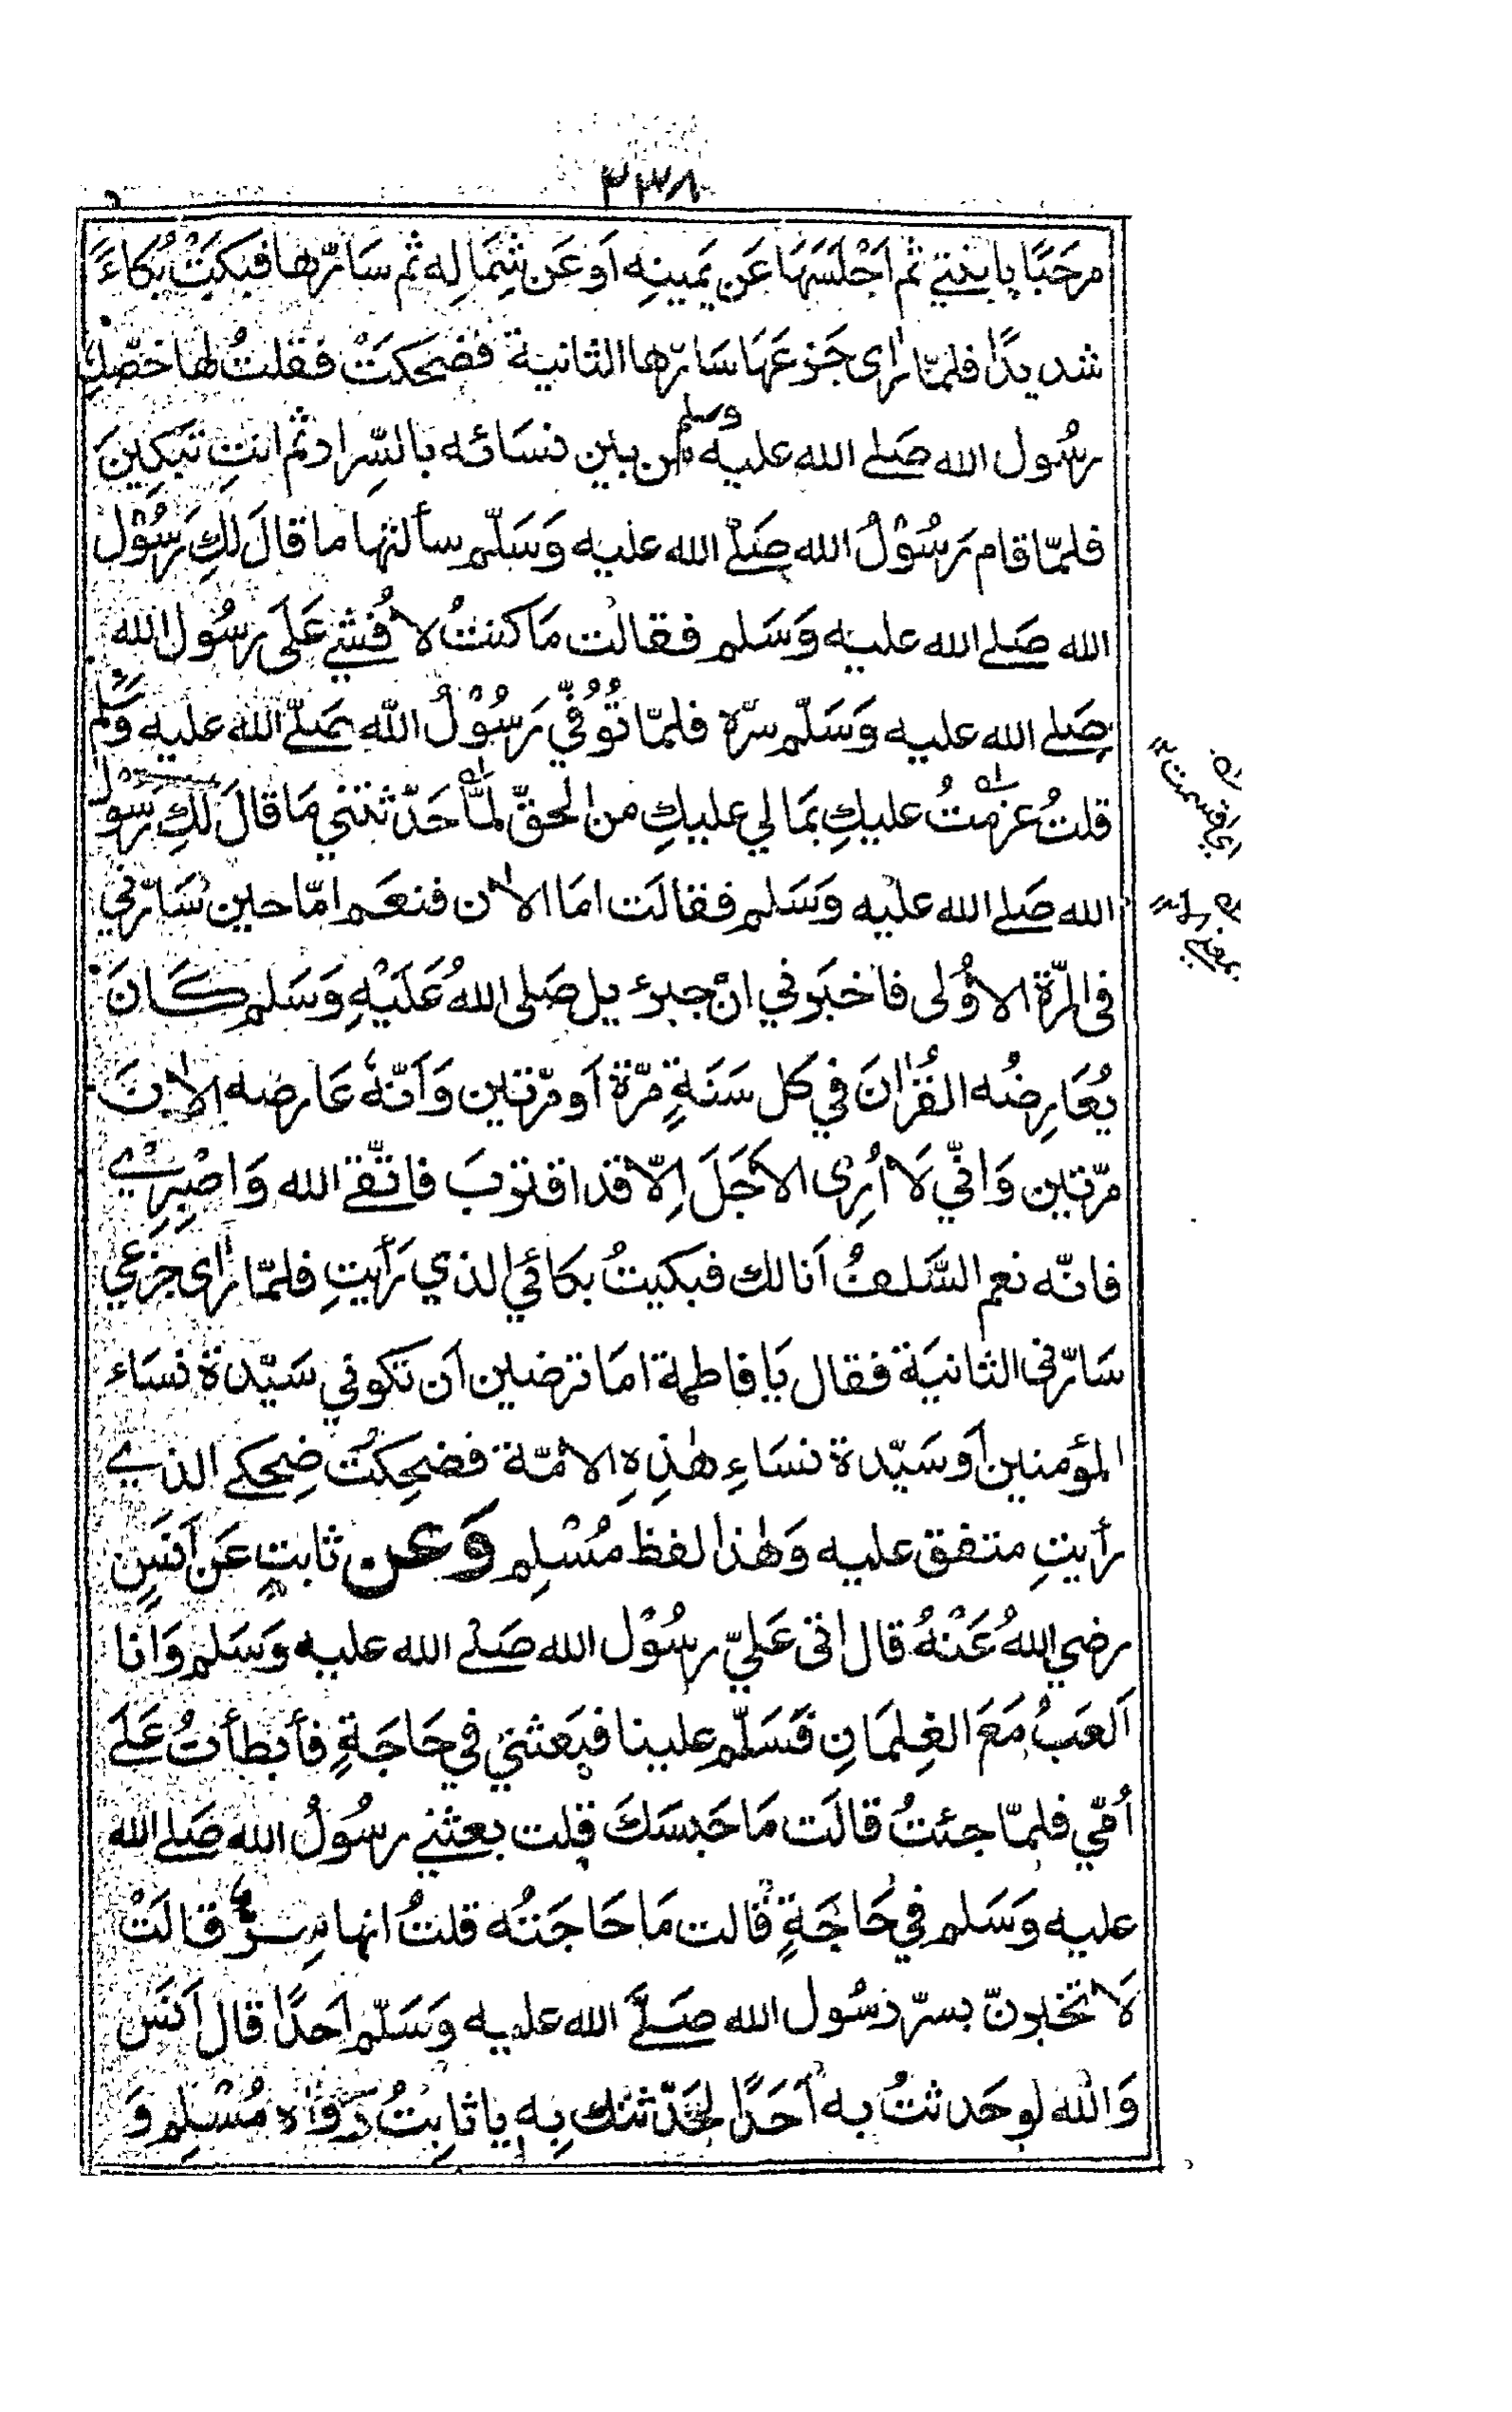 ٢٣٨
مرحَبًا يابنتي ثم اَجْلَسَهَا عَن يَمينِه اَو عَن شِمَالِه ثم سَارّها فبَكَتْ بُكاءً
شديدًا فلمّا رٰاى جَزعَهَا سَارّها الثانية فضحِكَتْ فقلتُ لها خصّكِ
رسُول الله صَلے الله عليه وسلم من بين نسَائه بالسِّرار ثم انتِ تبكِينَ
فلمّا قام رَسُوْلُ الله صَلے الله عليه وَسَلّم سألتها ما قالَ لكِ رَسُوْل
الله صَلے الله عليه وَسَلم فقالت مَا كنتُ لاُفشے عَلَى رسُول الله
صَلے الله عليه وَسَلّم سرّه فلمّا تُوُفِّيَ رَسُوْلُ اللّٰه صَلّے الله عليه وَسلم
قلتُ عزمتُ عليكِ بمَا لي عليكِ من الحقّ لمَّا حَدّثتني مَا قالَ لكِ رسُوْل
الله صَلے الله عليه وَسَلم فقالَت امَا الاٰن فنعَم امّا حين سَارّني
فى المرّة الاُولى فاخبَرني انّ جبرئيل صَلى اللهُ عَلَيْهِ وَسَلم كَانَ
يُعَارِضُه القُرْاٰنَ في كل سَنَةٍ مرّة اَو مرّتين وَاَنّهٗ عَارضه الاٰنَ
مرّتين وَانّي لَا اُرٰى الاَجَلَ اِلّا قد اقتربَ فاتّقے الله وَاصْبِرِي
فانّه نعم السَّلفُ اَنا لك فبكيتُ بكائي الذي رَأيتِ فلمّا رٰاى جزَعي
سَارّنى الثانيَة فقال يَا فاطمة امَا ترضين اَن تكوني سَيّدة نسَاء
المؤمنين اَو سَيّدة نسَاءِ هٰذِهِ الامّة فضحِكتُ ضِحكے الذي
رأيتِ متفق عليه وَهٰذا لفظ مُسْلِم وَعن ثابتٍ عَن اَنسٍ
رضي اللهُ عَنْهُ قال اتى عَليّ رسُوْل الله صَلے الله عليه وَسَلم وَانا
اَلعَبُ مَعَ الغِلمَانِ فَسَلّم علينا فبَعَثني في حَاجَةٍ فأبطأتُ عَلَے
اُمّي فلمّا جئتُ قالَت مَا حَبسَكَ قلت بعثنے رسُولُ الله صَلے الله
عليه وَسَلم في حَاجَةٍ قالت مَا حَاجَتُه قلتُ انها سِرٌّ قالَتْ
لَا تخبرنّ بسرّ رسُول الله صَلَّے الله عليه وَسَلّم اَحَدًا قال اَنسَ
وَالله لو حَدثتُ به اَحَدًا لحَدّثتك بِه يا ثابتُ رَوٰاه مُسْلِم وَ